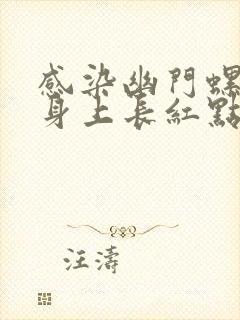 感染幽門螺
身上長紅點
汪濤